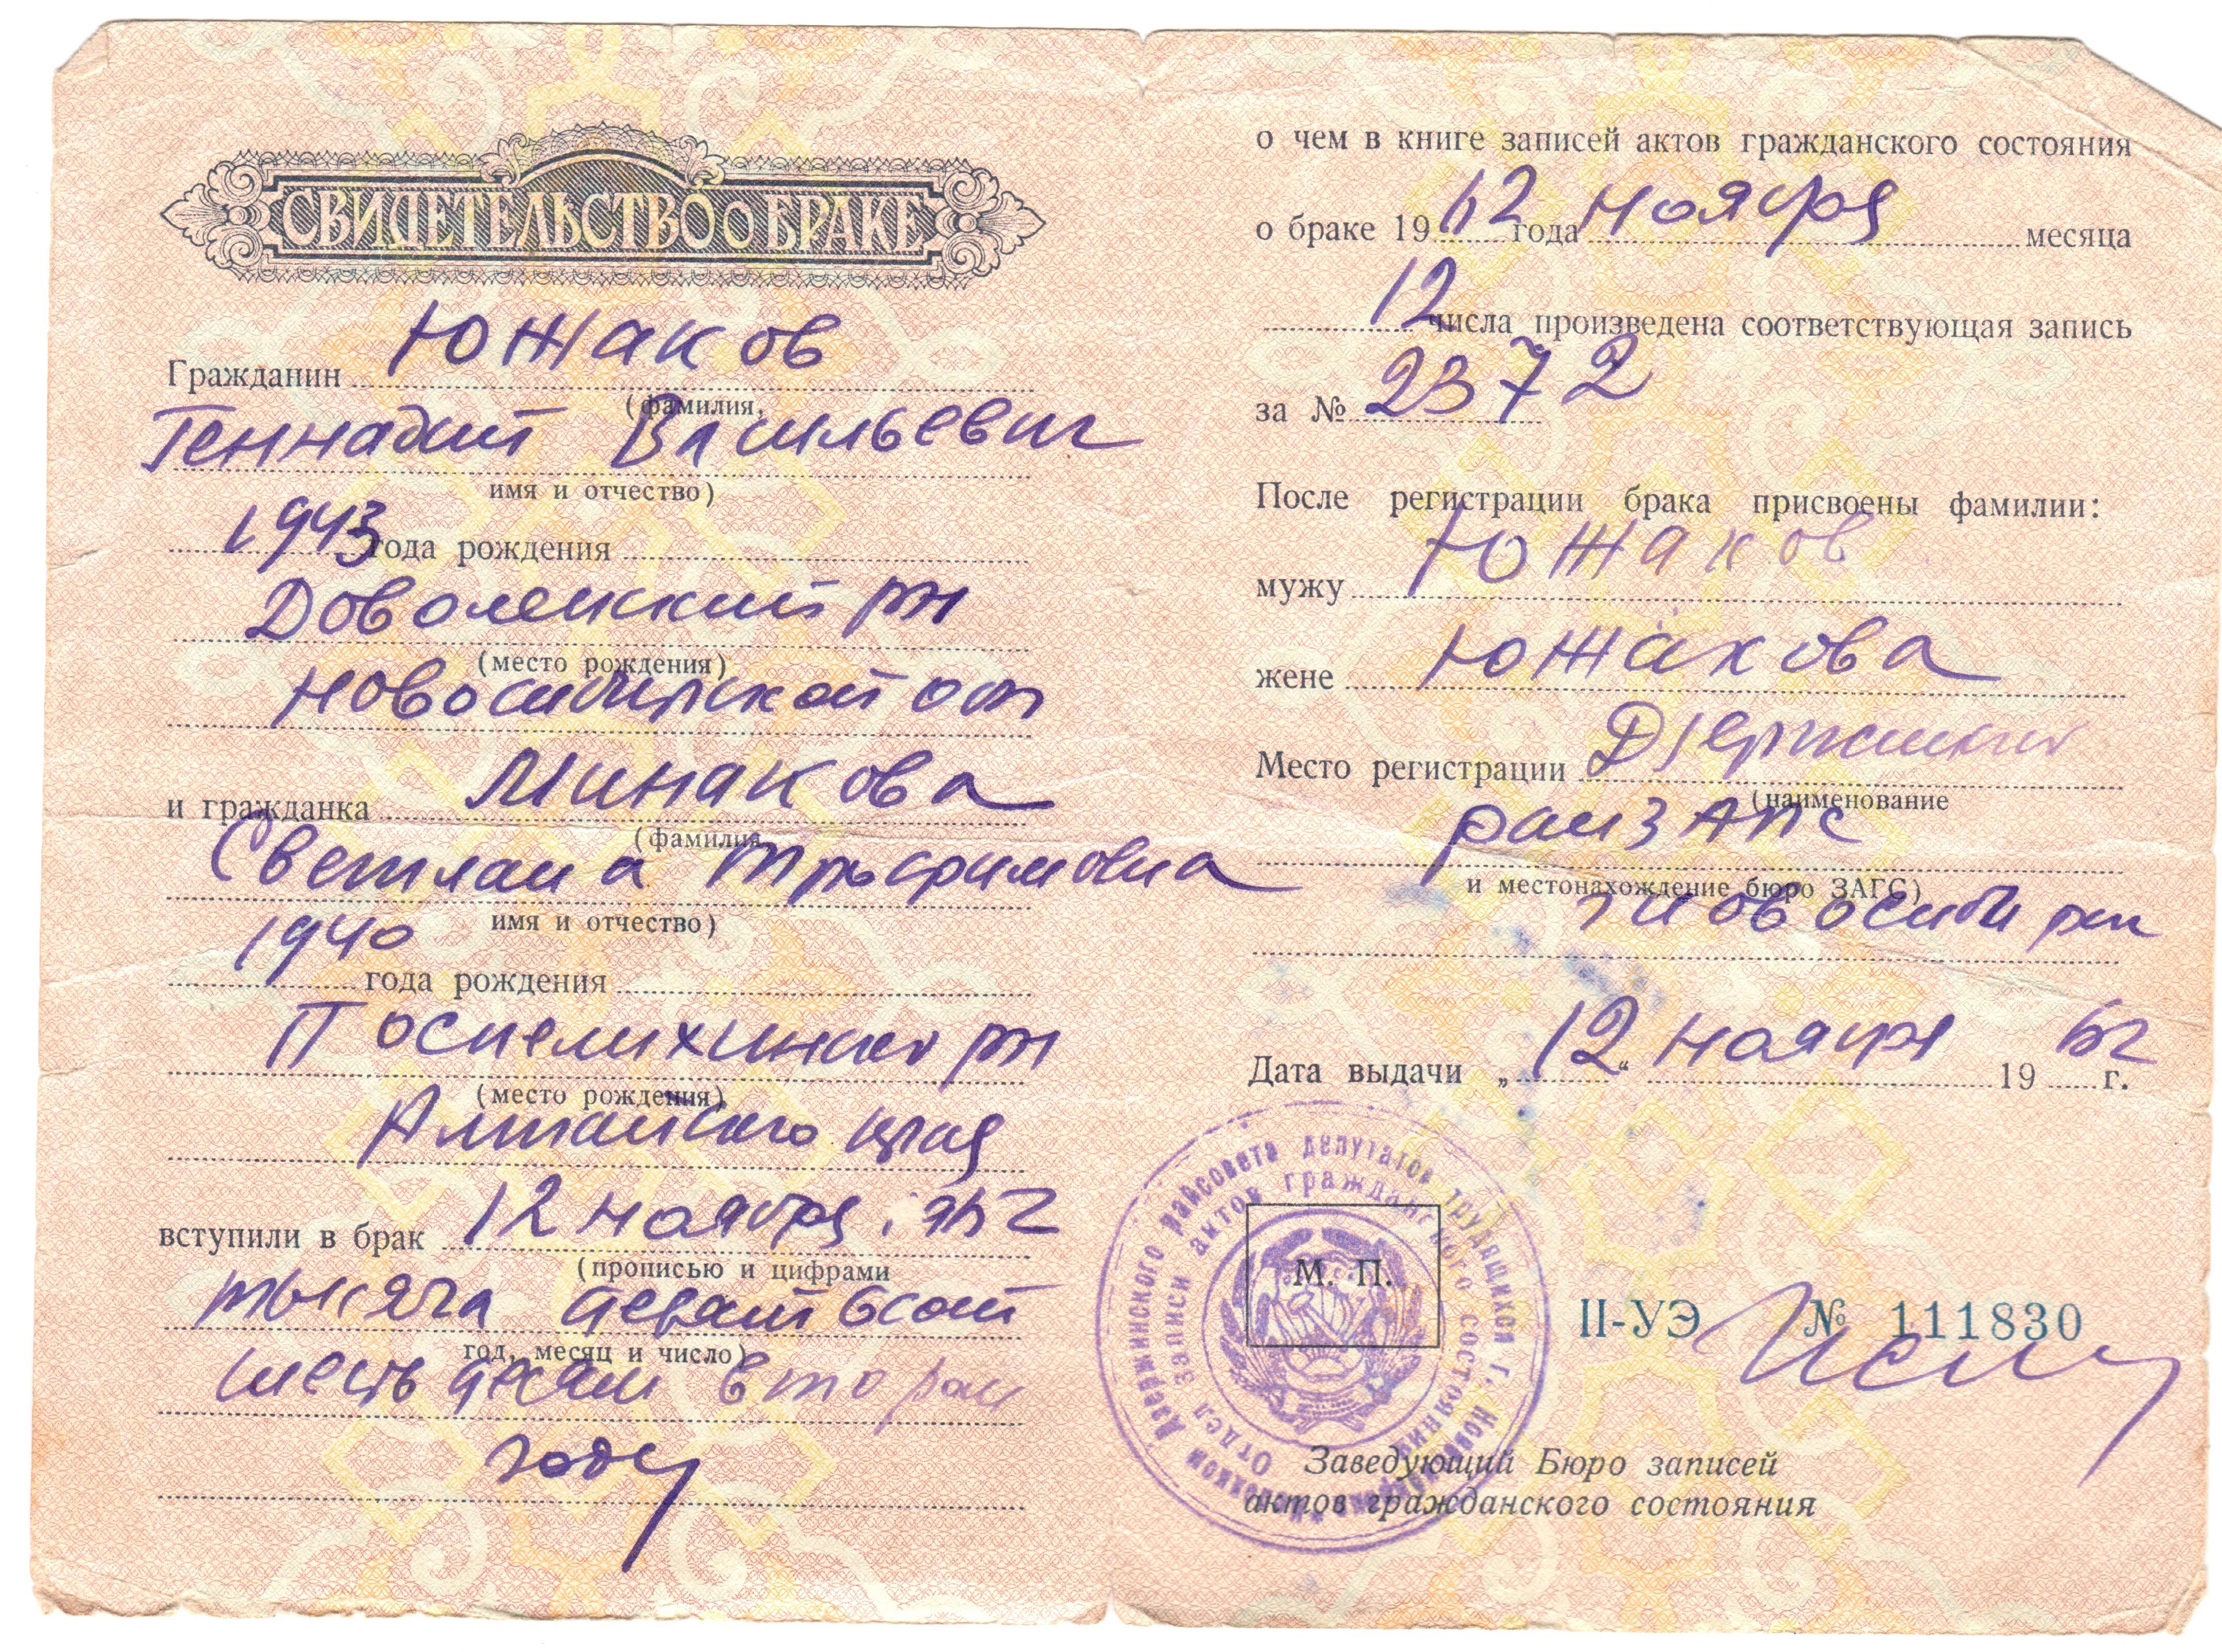 СВИДЕТЕЛЬСТВО о БРАКЕ
Гражданин Южаков
(фамилия,
Геннадий Васильевич
имя и отчество)
1943 года рождения
Доволенский рн
(место рождения)
Новосибирской обл
и гражданка Минакова
(фамилия,
Светлана
имя и отчество)
1940 года рождения
Поспелихинского рн
(место рождения)
Алтайского края
вступили в брак 12 ноября 1962
(прописью и цифрами
тысяча девятьсот
год, месяц и число)
шестьдесят втором
году
о чем в книге записей актов гражданского состояния
о браке 1962 года ноября месяца
12 числа произведена соответствующая запись
за № 2372
После регистрации брака присвоены фамилии:
мужу Южаков
жене Южакова
Место регистрации Дзержинский
(наименование
райЗАГС
и местонахождение бюро ЗАГС)
г Новосибирск
Дата выдачи „12“ ноября 1962 г.
Дзержинского райсовета депутатов трудящихся г. Новосибирска
Отдел записи актов гражданского состояния
М. П.
II-УЭ № 111830
Заведующий Бюро записей
актов гражданского состояния